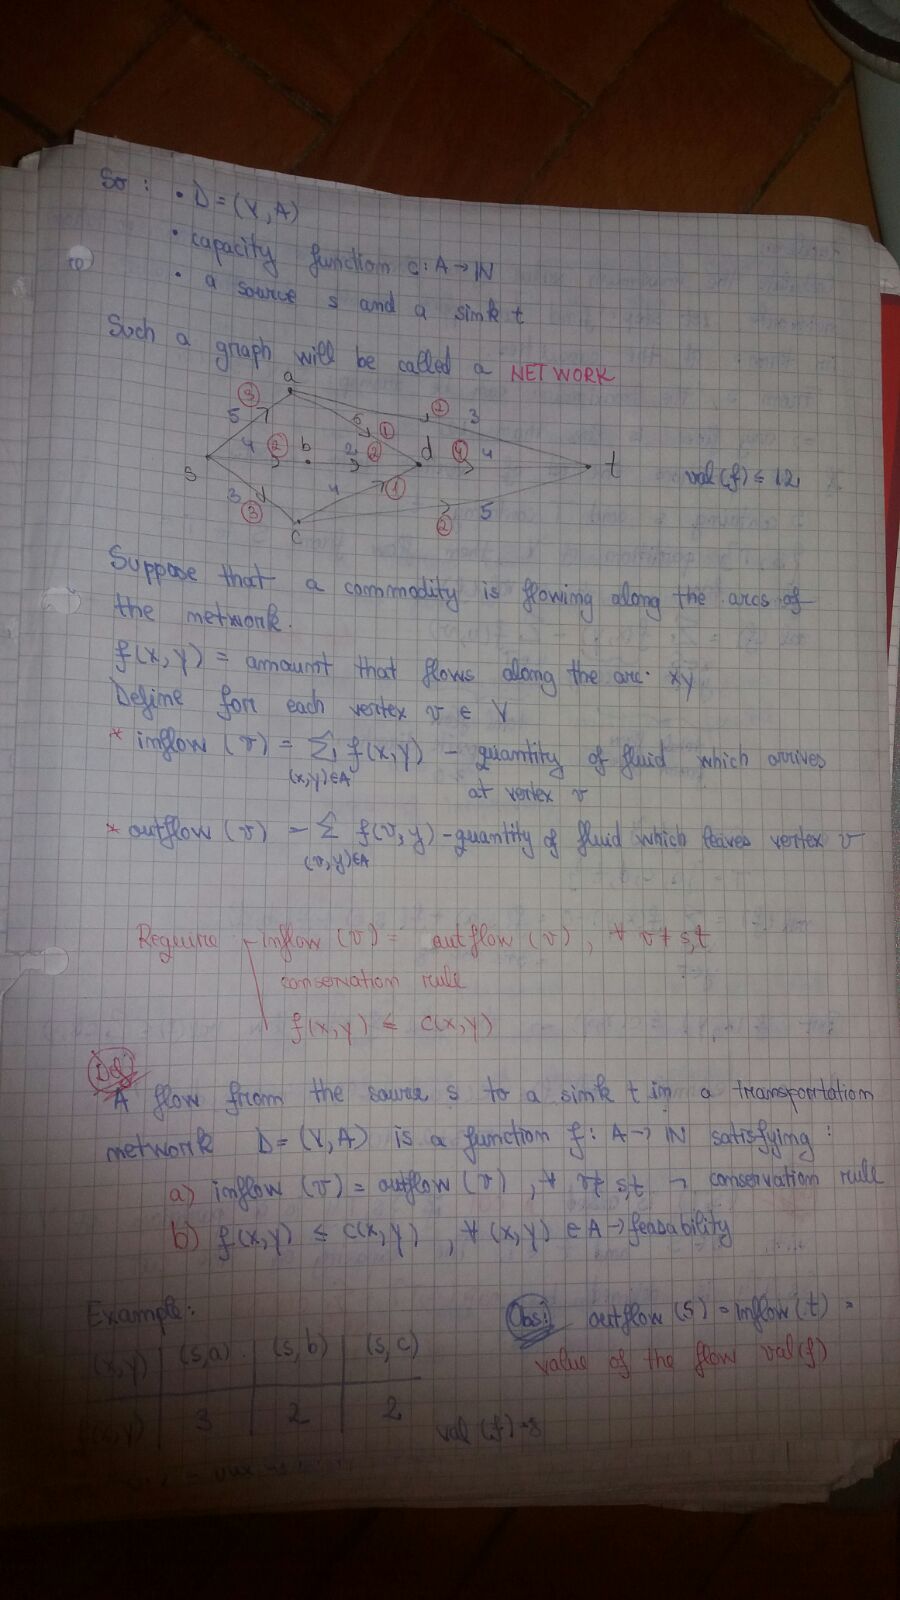 So : • D = (V, A)
• capacity function c: A → ℕ
• a source s and a sink t
Such a graph will be called a NETWORK
a
③ ② 3
5 6 ①
4 ② b 2 ② d ④ 4
s t val(f) ≤ 12
3 4 ①
③ ② 5
c
Suppose that a commodity is flowing along the arcs of
the network.
f(x, y) = amount that flows along the arc xy
Define for each vertex v ∈ V
* inflow (v) = Σ f(x, y) - quantity of fluid which arrives
(x,y)∈A at vertex v
* outflow (v) = Σ f(v, y) - quantity of fluid which leaves vertex v
(v,y)∈A
Require inflow (v) = outflow (v), ∀ v ≠ s,t
conservation rule
f(x, y) ≤ c(x, y)
Def
A flow from the source s to a sink t in a transportation
network D = (V, A) is a function f: A → ℕ satisfying :
a) inflow (v) = outflow (v), ∀ v ≠ s,t → conservation rule
b) f(x, y) ≤ c(x, y), ∀ (x, y) ∈ A → feasability
Example: Obs: outflow (s) = inflow (t) =
value of the flow val(f)
(x, y) (s, a) (s, b) (s, c)
f(x, y) 3 2 2 val (f) = 8